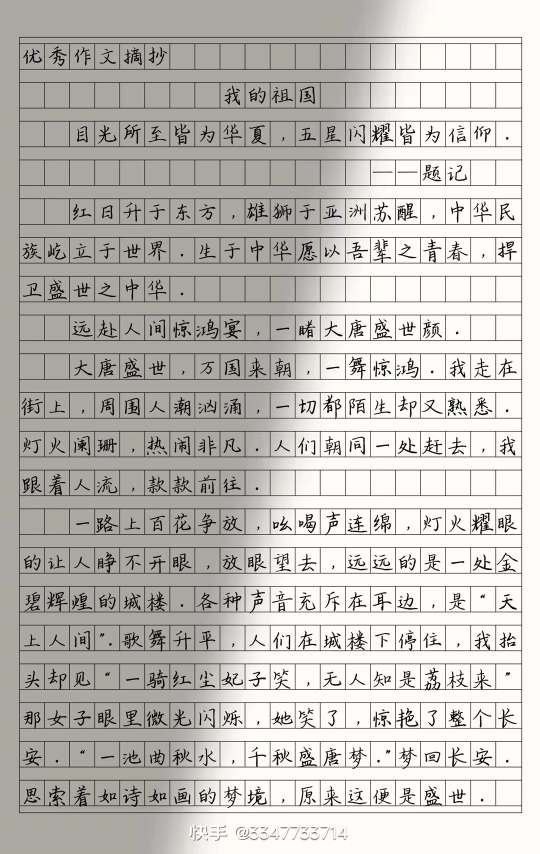 优秀作文摘抄
我的祖国
目光所至皆为华夏，五星闪耀皆为信仰．
——题记
红日升于东方，雄狮于亚洲苏醒，中华民
族屹立于世界．生于中华愿以吾辈之青春，捍
卫盛世之中华．
远赴人间惊鸿宴，一睹大唐盛世颜．
大唐盛世，万国来朝，一舞惊鸿．我走在
街上，周围人潮汹涌，一切都陌生却又熟悉．
灯火阑珊，热闹非凡．人们朝同一处赶去，我
跟着人流，款款前往．
一路上百花争放，吆喝声连绵，灯火耀眼
的让人睁不开眼，放眼望去，远远的是一处金
碧辉煌的城楼．各种声音充斥在耳边，是“天
上人间”．歌舞升平，人们在城楼下停住，我抬
头却见“一骑红尘妃子笑，无人知是荔枝来”
那女子眼里微光闪烁，她笑了，惊艳了整个长
安．“一池曲秋水，千秋盛唐梦．”梦回长安．
思索着如诗如画的梦境，原来这便是盛世．
快手 @3347733714